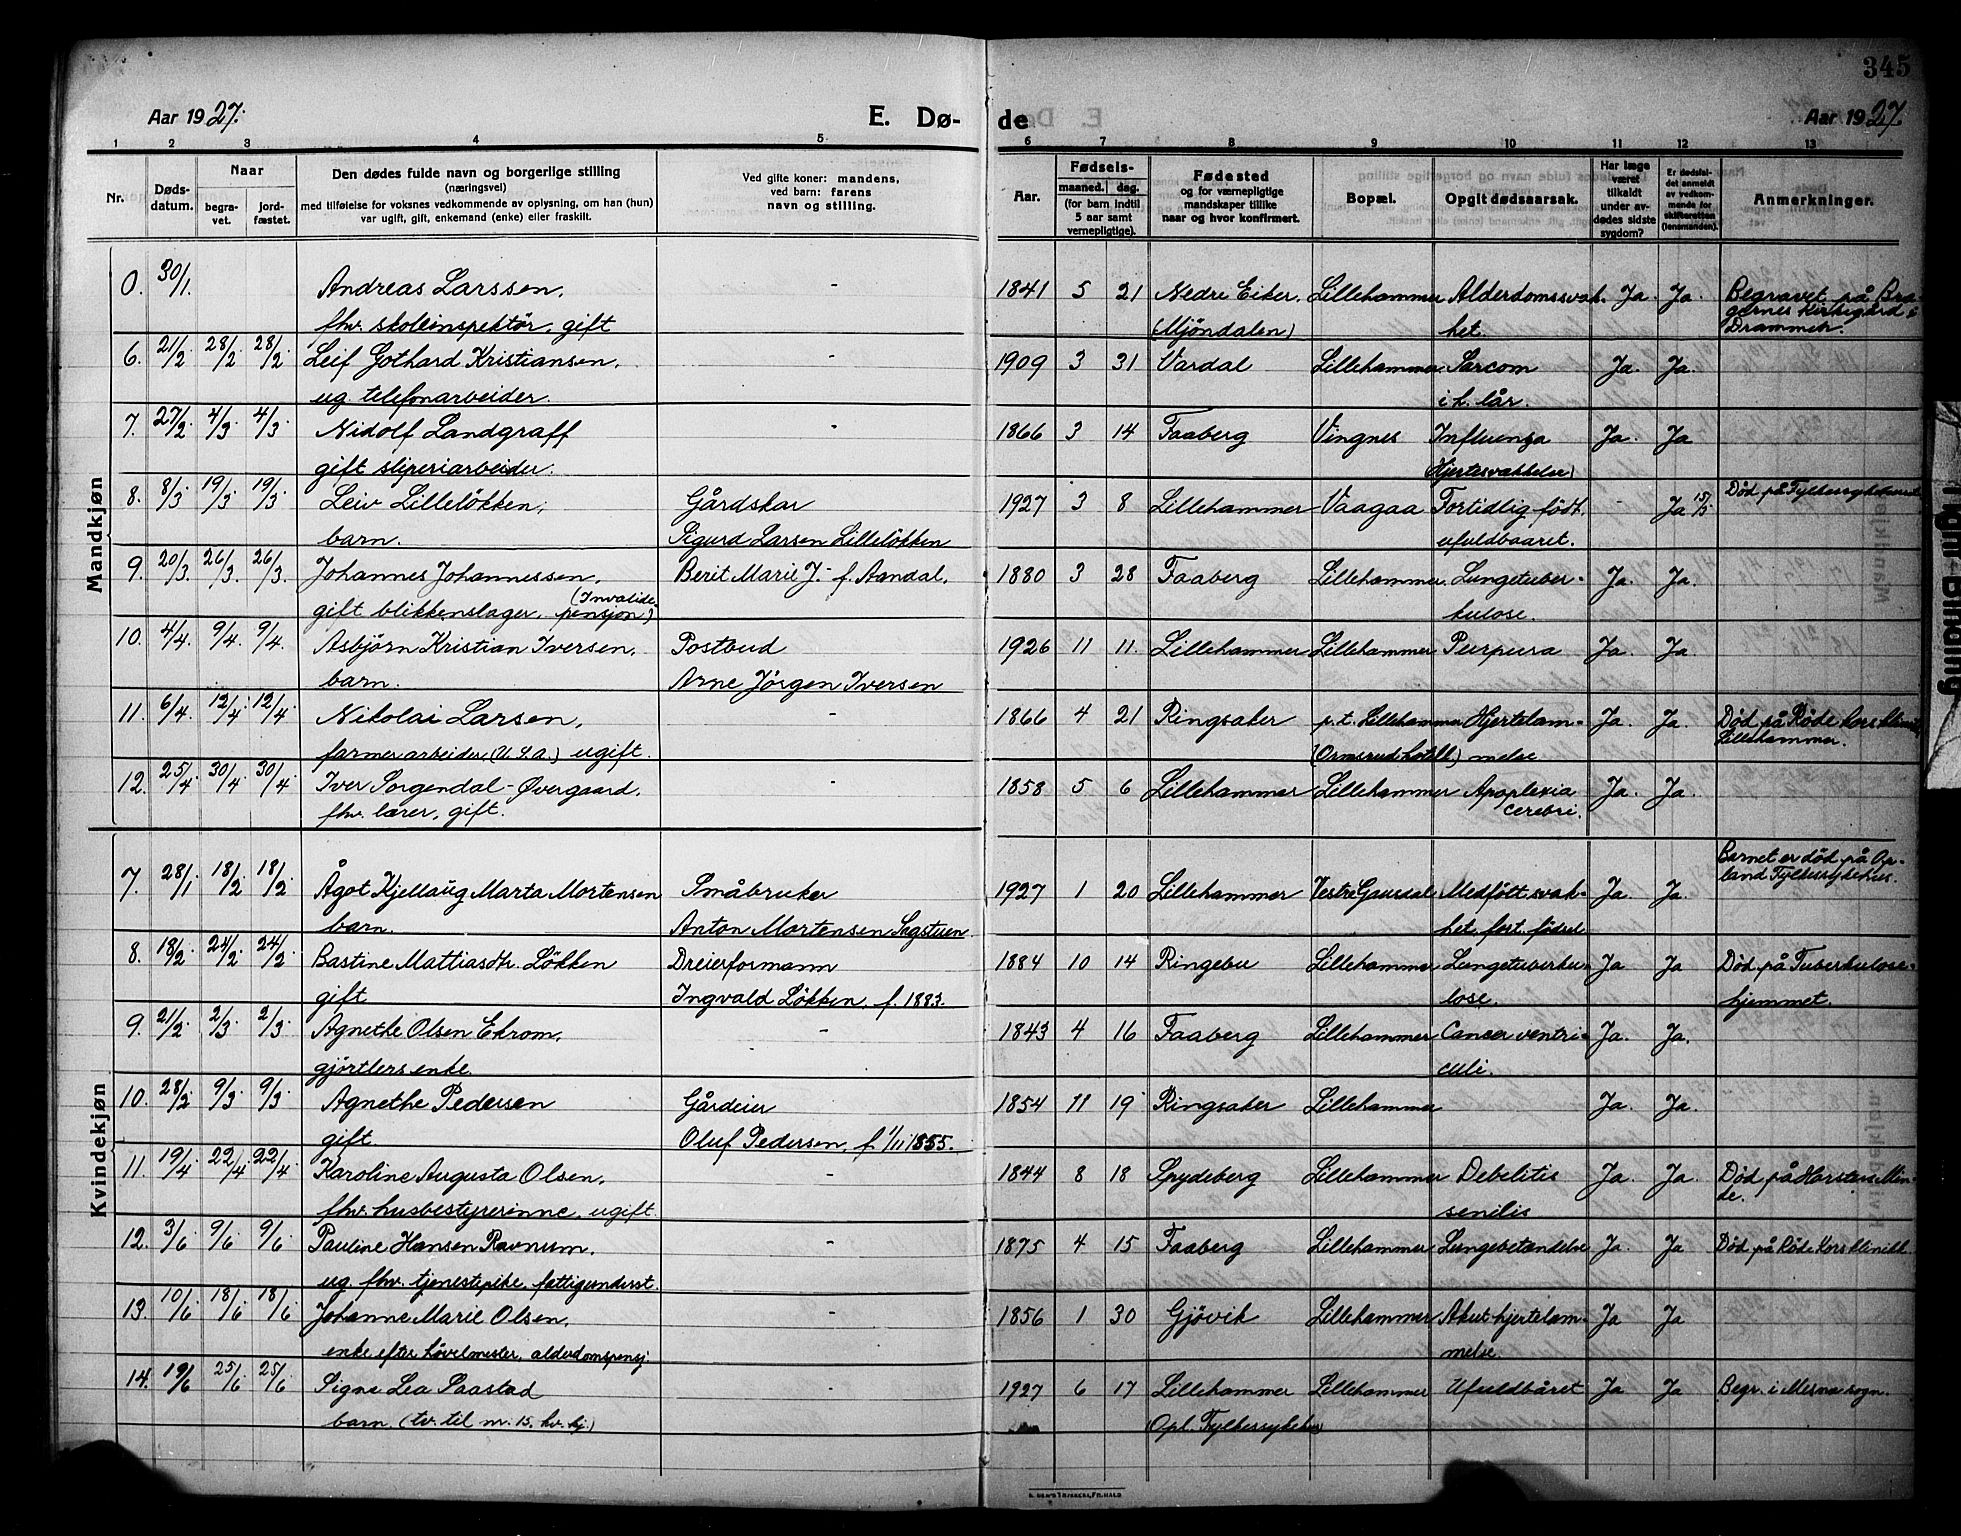 345
Aar 1927.
E. Dø-
de
Aar 1927.
1 2 3 4 5 6 7 8 9 10 11 12 13
Nr.
Døds-
datum.
Naar
begra-
vet.
jord-
fæstet.
Den dødes fulde navn og borgerlige stilling
(næringsvei)
med tilføielse for voksnes vedkommende av oplysning, om han (hun)
var ugift, gift, enkemand (enke) eller fraskilt.
Ved gifte koner: mandens,
ved barn: farens
navn og stilling.
Aar.
Fødsels-
maaned. dag.
(for barn indtil
5 aar samt
vernepligtige).
Fødested
og for værnepligtige
mandskaper tillike
naar og hvor konfirmert.
Bopæl.
Opgit dødsaarsak.
Har læge
været
tilkaldt
under av-
dødes sidste
sygdom?
Er dødsfal-
det anmeldt
av vedkom-
mende for
skifteretten
(lensmanden).
Anmerkninger.
Mandkjøn
0. 30/1. Andreas Larssen, - 1841 5 21 Nedre Eiker, Lillehammer Alderdomssvak- Ja. Ja. Begravet på Bra-
fhv. skoleinspektør, gift (Mjöndalen) het. gernes Kirkegård i
Drammen.
6. 21/2 28/2 28/2 Leif Gothard Kristiansen, - 1909 3 31 Vardal Lillehammer Sarcom Ja. Ja.
ug. telefonarbeider. i h. lår.
7. 27/2 4/3 4/3 Nidolf Landgraff - 1866 3 14 Faaberg Vingnes Influensa Ja. Ja
gift sliperiarbeider. (Hjertesvækkelse)
8. 8/3 19/3 19/3 Leiv Lilleløkken, Gårdskar 1927 3 8 Lillehammer Vaagaa Fortidlig født, - Ja 15/5 Död på Fylkessykehuset
barn. Sigurd Larsen Lilleløkken ufuldbaaret.
9. 20/3. 26/3. 26/3. Johannes Johannessen, Berit Marie J. f. Aandal. 1880 3 28 Faaberg Lillehammer. Lungetuber- Ja. Ja.
gift blikkenslager. (Invalide-
pensjon) kulose.
10. 4/4. 9/4. 9/4. Asbjørn Kristian Iversen, Postbud 1926 11 11. Lillehammer Lillehammer Purpura Ja. Ja.
barn. Arne Jörgen Iversen
11. 6/4. 12/4 12/4 Nikolai Larsen, - 1866 4 21 Ringsaker p.t. Lillehammer Hjertelam- Ja. Ja. Död på Röde Kors klinik,
farmerarbeider, (U.S.A.) ugift. (Ormsrud hotell) melse Lillehammer.
12. 25/4 30/4 30/4 Iver Sorgendal-Øvergaard, - 1858 5 6 Lillehammer Lillehammer Apoplexia Ja. Ja.
fhv. lærer, gift. cerebri.
Kvindekjøn
7. 28/1 18/2 18/2 Ågot Kjellaug Marta Mortensen Småbruker 1927 1 20 Lillehammer Vestre Gausdal Medfött svak- Ja. Ja. Barnet er död på Op-
land Fylkessykehus.
barn. Anton Mortensen Sagstuen het, fort. födsel
8. 18/2 24/2 24/2 Bastine Mattiasdtr. Løkken Dreierformann 1884 10 14 Ringebu Lillehammer Lungetuberku- Ja Ja Död på Tuberkulose-
gift Ingvald Løkken, f. 1883. lose. hjemmet.
9. 21/2 2/3 2/3 Agnethe Olsen Ekrom, - 1843 4 16 Faaberg Lillehammer Cancer ventri- Ja. Ja.
gjørtlers enke. culi.
10. 28/2 9/3 9/3 Agnethe Pedersen Gårdeier 1854 11 19 Ringsaker Lillehammer Ja. Ja.
gift. Oluf Pedersen, f. 1/11 1855.
11. 19/4 22/4 22/4 Karoline Augusta Olsen, - 1844 8 18 Spydeberg Lillehammer Debelitis Ja. Ja. Död på Horsters Min-
de.
fhv. husbestyrerinne, ugift. senilis
12. 3/6 9/6 9/6 Pauline Hansen Ravnum, - 1875 4 15 Faaberg Lillehammer Lungebetændelse Ja. Ja Död på Röde Kors klinikk
ug. fhv. tjenestepike, fattigunderst.
13. 10/6 18/6 18/6 Johanne Marie Olsen, - 1856 1 30 Gjövik Lillehammer Akut hjertelam- Ja Ja
enke efter høvelmester, alderdomspensj. melse.
14. 19/6 25/6 25/6 Signe Lea Saastad - 1927 6 17 Lillehammer Lillehammer Ufuldbåret Ja Ja Begr. i Mesna sogn.
barn. (tv. til m. 15. hv. kj.) (Opl. Fylkessykehus)